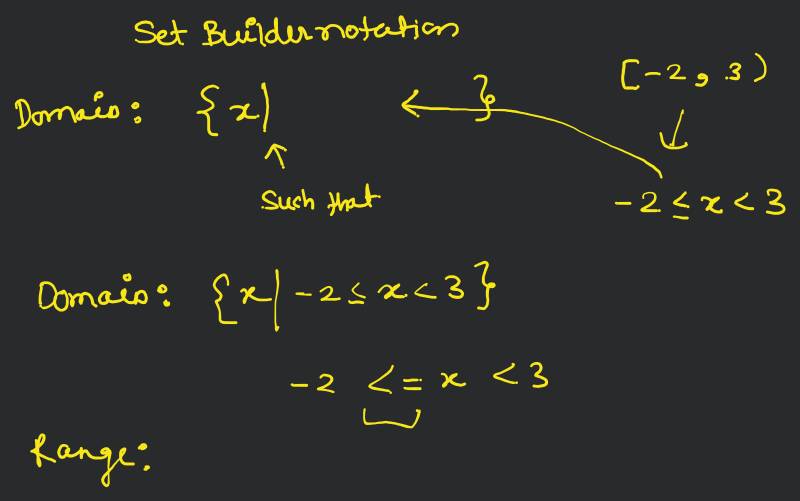 Set Builder notation
[-2, 3)
Domain: {x| }
Such that
-2 ≤ x < 3
Domain: {x| -2 ≤ x < 3}
-2 <= x < 3
Range: